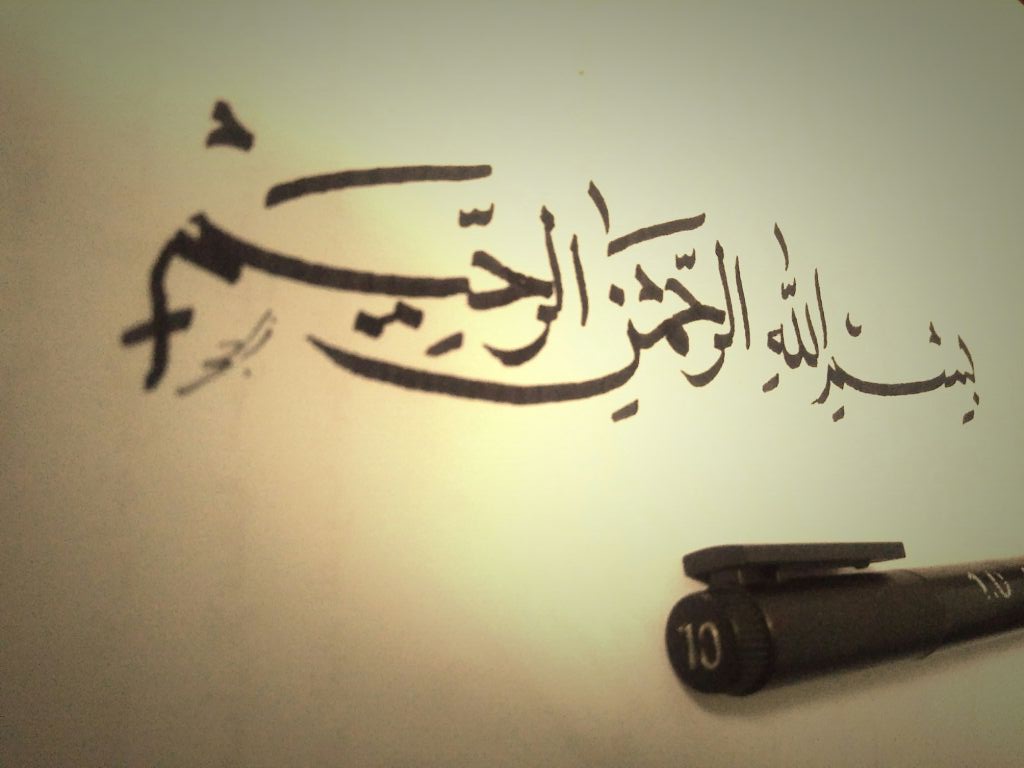 بِسْمِ اللّٰهِ الرَّحْمٰنِ الرَّحِيْمُ
10
1.0